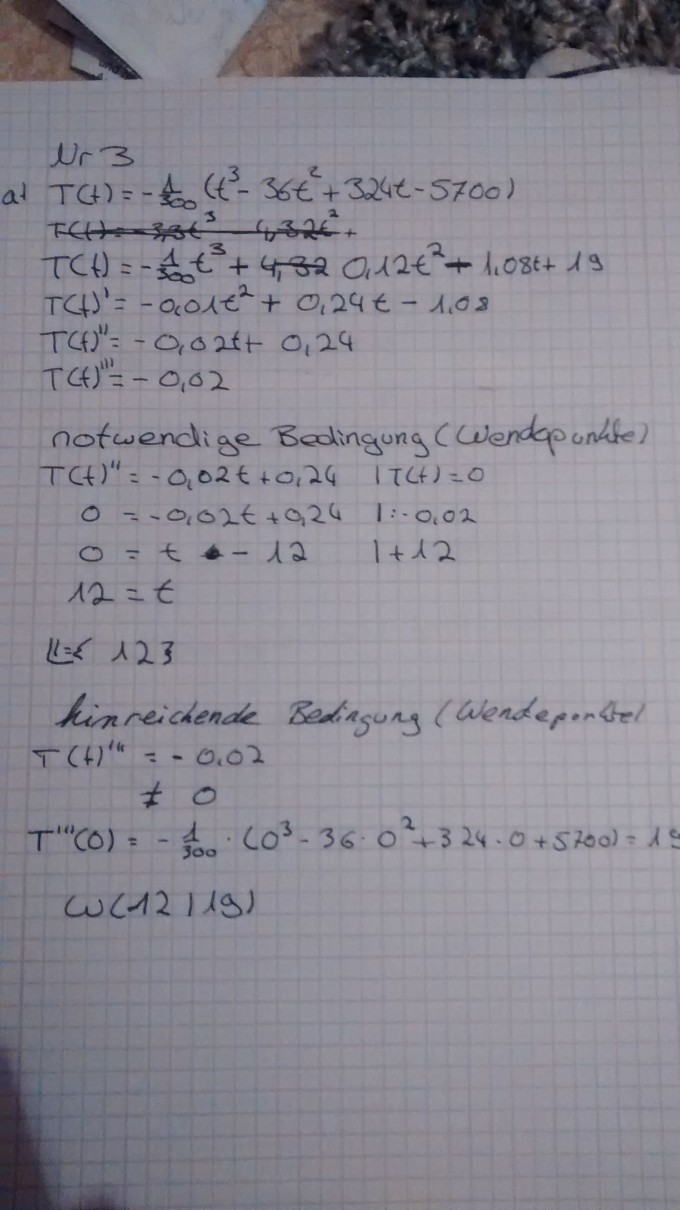 Nr 3
a) T(t) = -1/300 (t³ - 36t² + 324t - 5700)
T(t) = -3,3t³ 4,32t² +
T(t) = -1/300 t³ + 4,32 0,12t² - 1,08t + 19
T(t)' = -0,01t² + 0,24t - 1,08
T(t)'' = -0,02t + 0,24
T(t)''' = -0,02
notwendige Bedingung (Wendepunkte)
T(t)'' = -0,02t + 0,24 | T(t) = 0
0 = -0,02t + 0,24 | : -0,02
0 = t - 12 | + 12
12 = t
L = { 12 }
hinreichende Bedingung (Wendepunkte)
T(t)''' = -0,02
≠ 0
T'''(0) = -1/300 · (0³ - 36 · 0² + 324 · 0 + 5700) = 19
W(12 | 19)